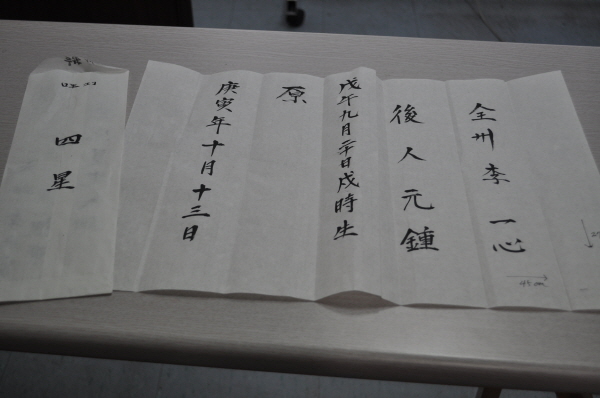 全州李 一心
後人 元鍾
戊午九月二十日戌時生
原
庚寅年十月十三日
四星